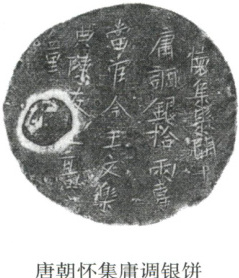 懷集縣開
庸調銀拾兩專
當官令王文樂
典陳友
量
唐朝怀集庸调银饼